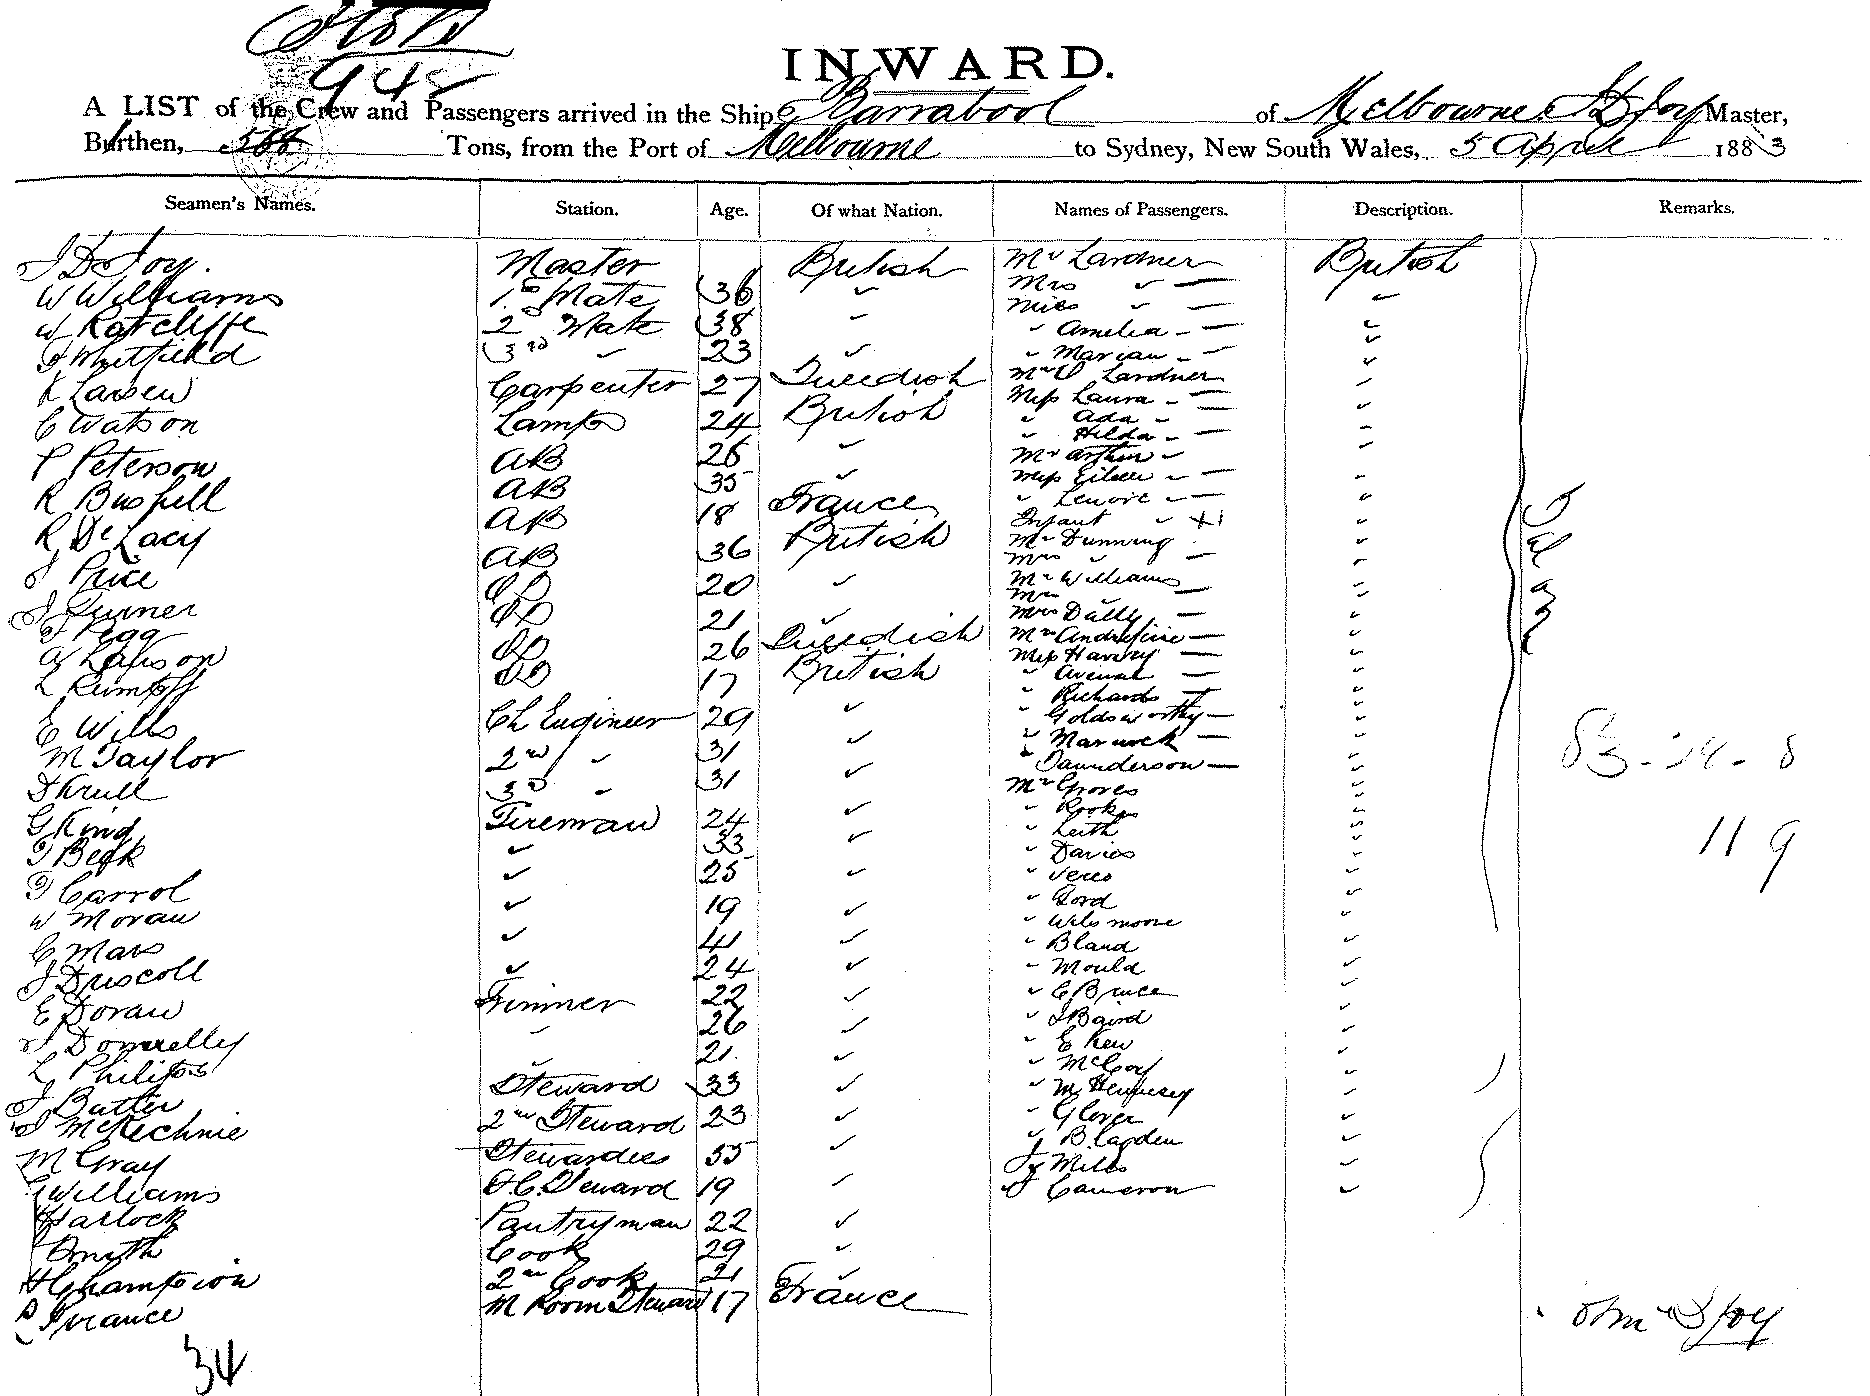 948
INWARD.
A LIST of the Crew and Passengers arrived in the Ship Barrabool of Melbourne J D Joy Master,
Burthen, 568 Tons, from the Port of Melbourne to Sydney, New South Wales, 5 April 1883
Seamen's Names. Station. Age. Of what Nation. Names of Passengers. Description. Remarks.
J D Joy. Master British Mr Lardner British
W Williams 1st Mate 36 " Mrs " —
W Ratcliffe 2nd Mate 38 " Miss " —
" Amelia - —
J Whitfield 3rd " 23 " " Marian - —
K Larsen Carpenter 27 Swedish Mrs Lardner
Miss Laura - —
C Watson Lamps 24 British " Ada -
" Hilda - —
P Peterson AB 26 " Mr Arthur -
R Bushell AB 35 " Miss Eileen - —
" Lenore - —
R De Lacy AB 18 France Infant "
J Price AB 36 British Mr Dunning
Mrs " —
J Turner OS 20 " Mr Williams
Mrs "
T Pegg OS 21 " Mrs Dally —
A Larson OS 26 Swedish Mrs —
L Rumpff OS 17 British Miss Harvey —
" —
" Richards —
E Wills Ch Engineer 29 " " Goldsworthy —
M Taylor 2nd " 31 " " Warwick —
" Saunderson —
D Krull 3rd " 31 " Mr Groves
" Rooke
G King Fireman 24 " " Leith
J Beck " 33 " " Davies
J Carrol " 25 " " Veres
" Gord
W Moran " 19 " " Wilsmoore
C Mars " 41 " " Bland
J Driscoll " 24 " " Mould
E Doran Trimmer 22 " " C Bruce
J Donnelly " 26 " " J Baird
" E Kew
L Philips " 21 " " McCoy
J Butler Steward 33 " " M Hennesey
J McKechnie 2nd Steward 23 " " Glover
" B Lagden
M Gray Stewardess 55 " " Miles
G Williams F.C. Steward 19 " J Cameron
Harlock Pantryman 22 "
Smyth Cook 29 "
H Champion 2nd Cook 21 "
P France M Room Steward 17 France
Saloon
119
34
J D Joy